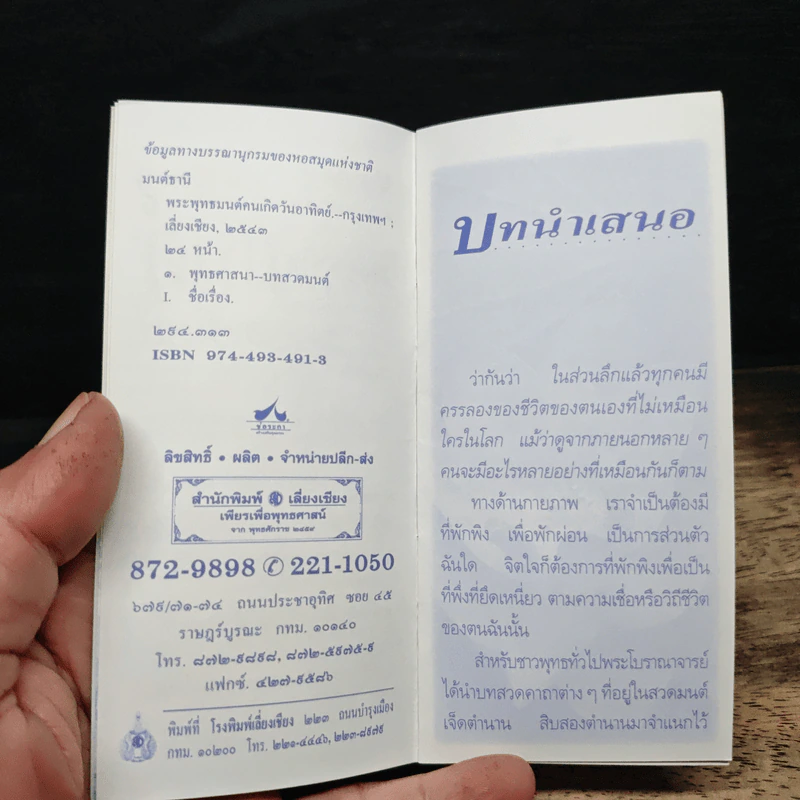 ข้อมูลทางบรรณานุกรมของหอสมุดแห่งชาติ
มนต์ธานี
พระพุทธมนต์คนเกิดวันอาทิตย์.--กรุงเทพฯ ;
เลี่ยงเชียง, ๒๕๔๓
๒๔ หน้า.
๑. พุทธศาสนา--บทสวดมนต์
I. ชื่อเรื่อง.
๒๙๔.๓๑๓
ISBN 974-493-491-3
ช่อระกา
ลิขสิทธิ์ • ผลิต • จำหน่ายปลีก-ส่ง
สำนักพิมพ์ เลี่ยงเชียง
เพียรเพื่อพุทธศาสน์
จาก พุทธศักราช ๒๔๕๙
872-9898 ✆ 221-1050
๖๗๙/๗๑-๗๔ ถนนประชาอุทิศ ซอย ๔๕
ราษฎร์บูรณะ กทม. ๑๐๑๔๐
โทร. ๘๗๒-๙๘๙๘, ๘๗๒-๕๙๗๕-๙
แฟกซ์. ๔๒๗-๙๕๘๖
พิมพ์ที่ โรงพิมพ์เลี่ยงเชียง ๒๒๓ ถนนบำรุงเมือง
กทม. ๑๐๒๐๐ โทร. ๒๒๑-๔๔๔๖, ๒๒๓-๘๙๗๙
บทนำเสนอ
ว่ากันว่า ในส่วนลึกแล้วทุกคนมี
ครรลองของชีวิตของตนเองที่ไม่เหมือน
ใครในโลก แม้ว่าดูจากภายนอกหลาย ๆ
คนจะมีอะไรหลายอย่างที่เหมือนกันก็ตาม
ทางด้านกายภาพ เราจำเป็นต้องมี
ที่พักพิง เพื่อพักผ่อน เป็นการส่วนตัว
ฉันใด จิตใจก็ต้องการที่พักพิงเพื่อเป็น
ที่พึ่งที่ยึดเหนี่ยว ตามความเชื่อหรือวิถีชีวิต
ของตนฉันนั้น
สำหรับชาวพุทธทั่วไปพระโบราณาจารย์
ได้นำบทสวดคาถาต่าง ๆ ที่อยู่ในสวดมนต์
เจ็ดตำนาน สิบสองตำนานมาจำแนกไว้